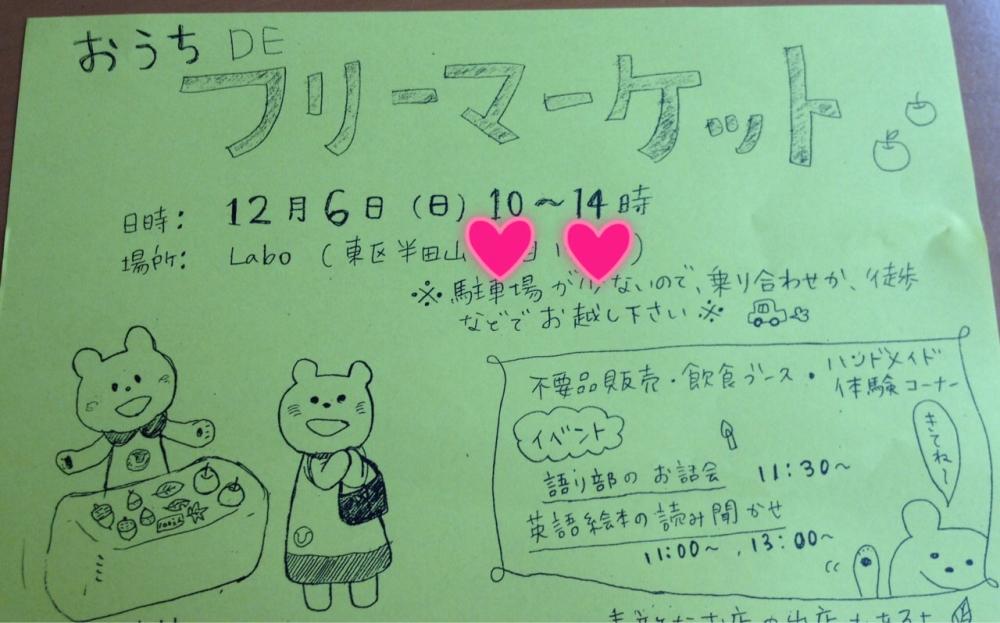 おうち DE
フリーマーケット
日時: 12月6日(日)10〜14時
場所: Labo (東区半田山 )
※駐車場が少ないので、乗り合わせか、徒歩
などでお越し下さい※
不要品販売・飲食ブース・ハンドメイド
体験コーナー
イベント
語り部のお話会 11:30〜
英語絵本の読み聞かせ
11:00〜 , 13:00〜
きてね〜
100円